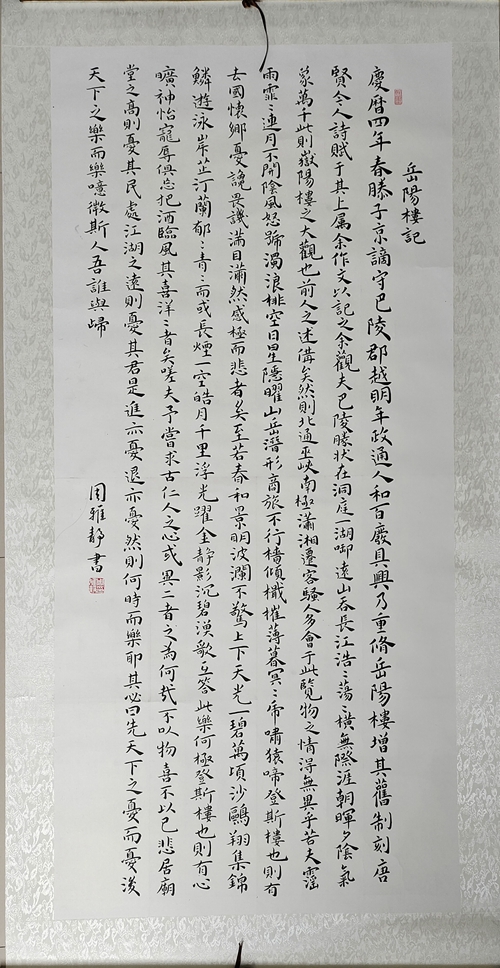 岳陽樓記
慶曆四年春滕子京謫守巴陵郡越明年政通人和百廢具興乃重脩岳陽樓增其舊制刻唐
賢今人詩賦于其上屬余作文以記之余觀夫巴陵勝狀在洞庭一湖銜遠山吞長江浩〻蕩〻橫無際涯朝暉夕陰氣
象萬千此則嶽陽樓之大觀也前人之述備矣然則北通巫峽南極瀟湘遷客騷人多會于此覽物之情得無異乎若夫霪
雨霏〻連月不開陰風怒號濁浪排空日星隱曜山岳潛形商旅不行檣傾檝摧薄暮冥〻乕嘯猿啼登斯樓也則有
去國懷鄉憂讒畏譏滿目蕭然感極而悲者矣至若春和景明波瀾不驚上下天光一碧萬頃沙鷗翔集錦
鱗遊泳岸芷汀蘭郁〻青〻而或長煙一空皓月千里浮光躍金靜影沉碧漁歌互答此樂何極登斯樓也則有心
曠神怡寵辱俱忘把酒臨風其喜洋〻者矣嗟夫予嘗求古仁人之心或異二者之為何哉不以物喜不以己悲居廟
堂之高則憂其民處江湖之遠則憂其君是進亦憂退亦憂然則何時而樂耶其必曰先天下之憂而憂後
天下之樂而樂噫微斯人吾誰與歸
周雅靜書